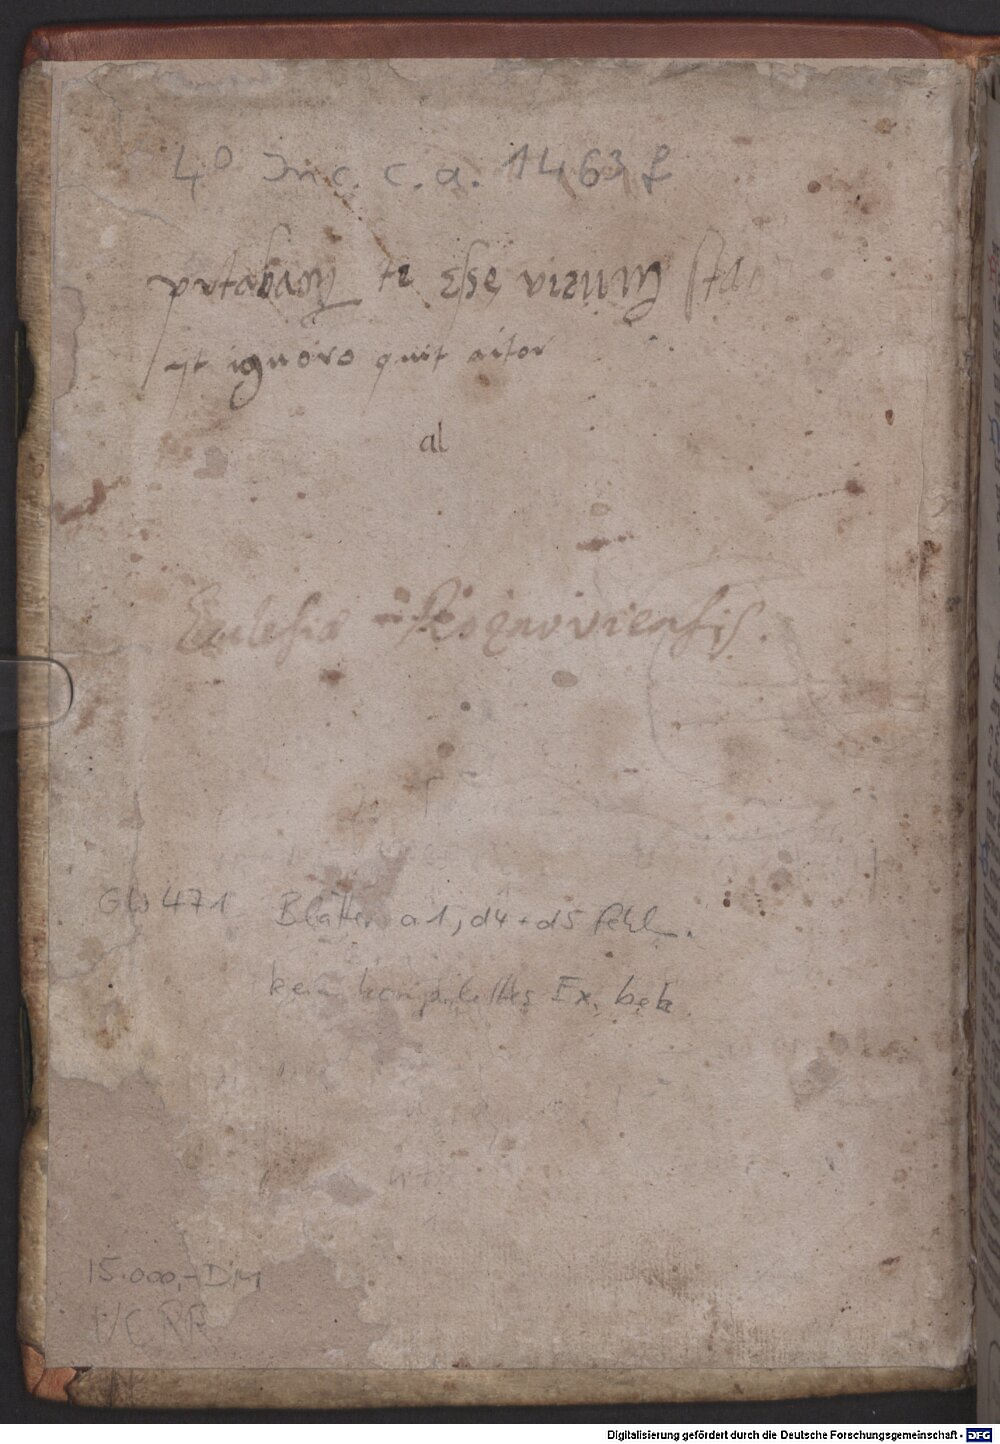 4° Inc. c. a. 1463 f
putabam te esse virum
et ignoro quit
al
Ecclesiæ Rognoviensis.
GW 471 Blätter a1, d4 + d5 fehlen.
kein komplettes Ex. bek.
15.000,- DM
Digitalisierung gefördert durch die Deutsche Forschungsgemeinschaft - DFG